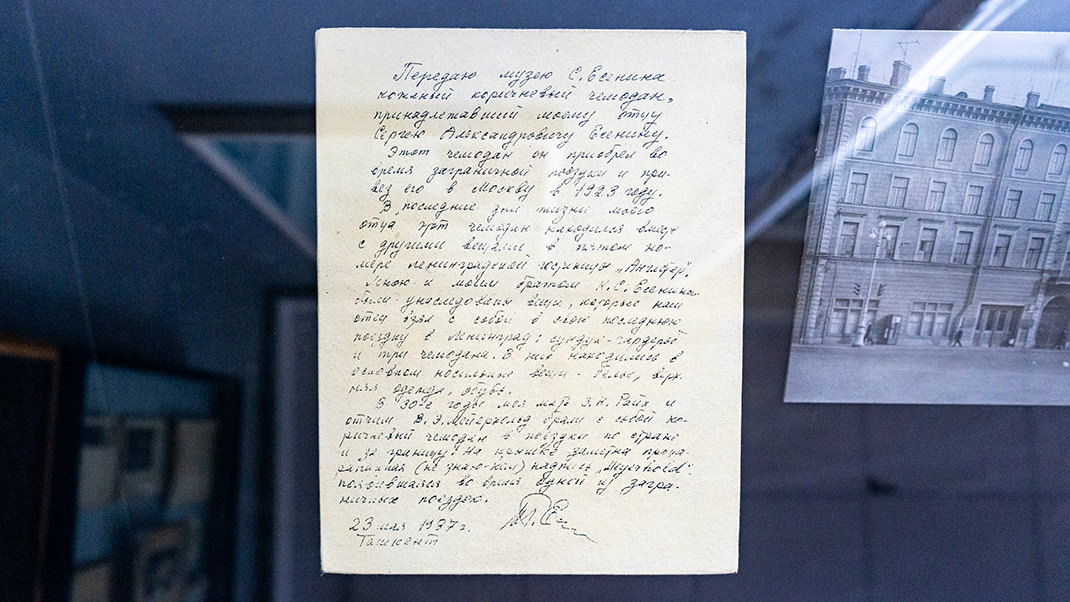 Передаю музею С. Есенина
кожаный коричневый чемодан,
принадлежавший моему отцу
Сергею Александровичу Есенину.
Этот чемодан он приобрел во
время заграничной поездки и при-
вез его в Москву в 1923 году.
В последние дни жизни моего
отца этот чемодан находился вместе
с другими вещами в пятом но-
мере ленинградской гостиницы „Англетер".
Мною и моим братом К. С. Есениным
были унаследованы вещи, которые наш
отец взял с собой в свою последнюю
поездку в Ленинград: сундук-гардероб
и три чемодана. В них находились в
основном носильные вещи - белье, верх-
няя одежда, обувь.
В 30-е годы моя мать З. Н. Райх и
отчим В. Э. Мейерхольд брали с собой ко-
ричневый чемодан в поездки по стране
и за границу. На крышке заметна проца-
рапанная (не знаю - кем) надпись „Meyerhold",
появившаяся во время одной из загра-
ничных поездок.
23 мая 1977 г.
Ташкент